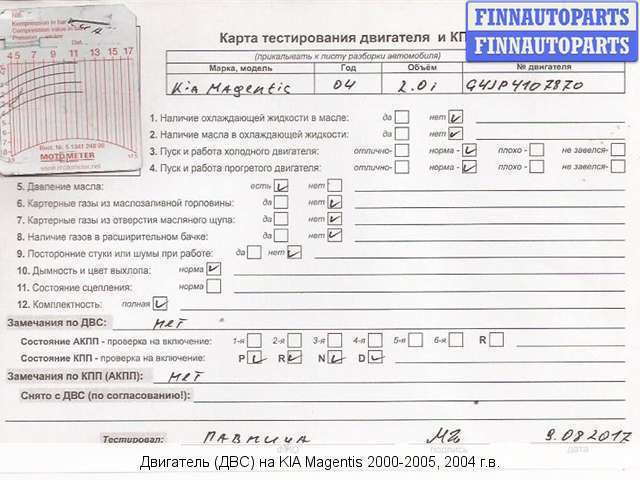 FINNAUTOPARTS
FINNAUTOPARTS
Kompression in bar
Compression value in bar
Dat.
4 5 7 9 11 13 15 17
Best. Nr. 5 1341 248 00
MOTOMETER
www.motometer.net
Карта тестирования двигателя и КП
(прикалывать к листу разборки автомобиля)
Марка, модель Год Объём № двигателя
Kia Magentic 04 2.0i G4JP4107870
1. Наличие охлаждающей жидкости в масле: да нет
2. Наличие масла в охлаждающей жидкости: да нет
3. Пуск и работа холодного двигателя: отлично- норма - плохо - не завелся-
4. Пуск и работа прогретого двигателя: отлично- норма - плохо - не завелся-
5. Давление масла: есть нет
6. Картерные газы из маслозаливной горловины: да нет
7. Картерные газы из отверстия масляного щупа: да нет
8. Наличие газов в расширительном бачке: да нет
9. Посторонние стуки или шумы при работе: да нет
10. Дымность и цвет выхлопа: норма
11. Состояние сцепления: норма
12. Комплектность: полная
Замечания по ДВС: нет
Состояние АКПП - проверка на включение: 1-я 2-я 3-я 4-я 5-я 6-я R
Состояние КПП - проверка на включение: P R N D
Замечания по КПП (АКПП): нет
Снято с ДВС (по согласованию!):
Тестировал: 9.08.2017
ФИО подпись дата
Двигатель (ДВС) на KIA Magentis 2000-2005, 2004 г.в.